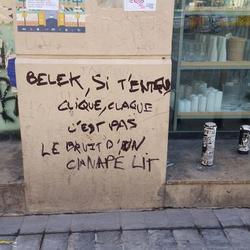 BELEK, Si T'ENTEND
CLIQUE, CLAQUE
C'EST PAS
LE BRUIT D'UN
CANAPÉ LIT